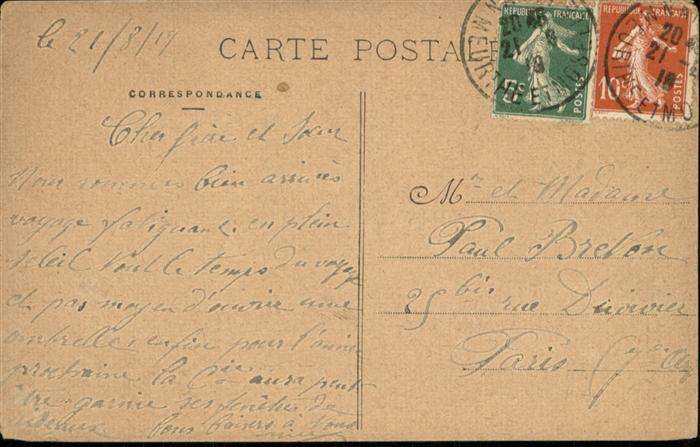 le 21/8/19
CARTE POSTALE
CORRESPONDANCE
REPUBLIQUE FRANÇAISE
5c POSTES
REPUBLIQUE FRANÇAISE
10c POSTES
MEURTHE ET MOS
20
21
Cher frère et Sœur
Nous sommes bien arrivés
voyage fatiguant en plein
soleil tout le temps du voyage
et pas moyen d'ouvrir une
ombrelle enfin pour l'année
prochaine la Cie aura peut
être garnie ses fenêtres de
rideaux Nous baisers à tous
Mr et Madame
Paul Breton
25 bis rue Duvivier
Paris